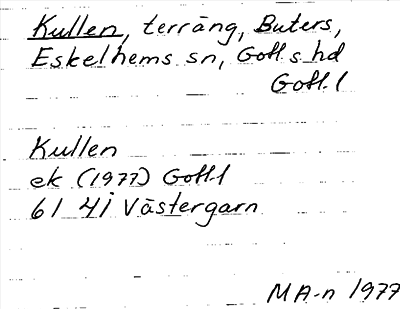 Kullen, terräng, Buters,
Eskelhems sn, Gotl. s. hd
Gotl. l
Kullen
ek (1977) Gotl.l
61 4i Västergarn
MA-n 1977